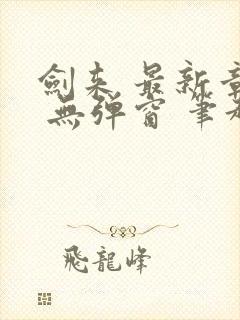 劍来 最新章
無弹窗 筆
飛龍峰